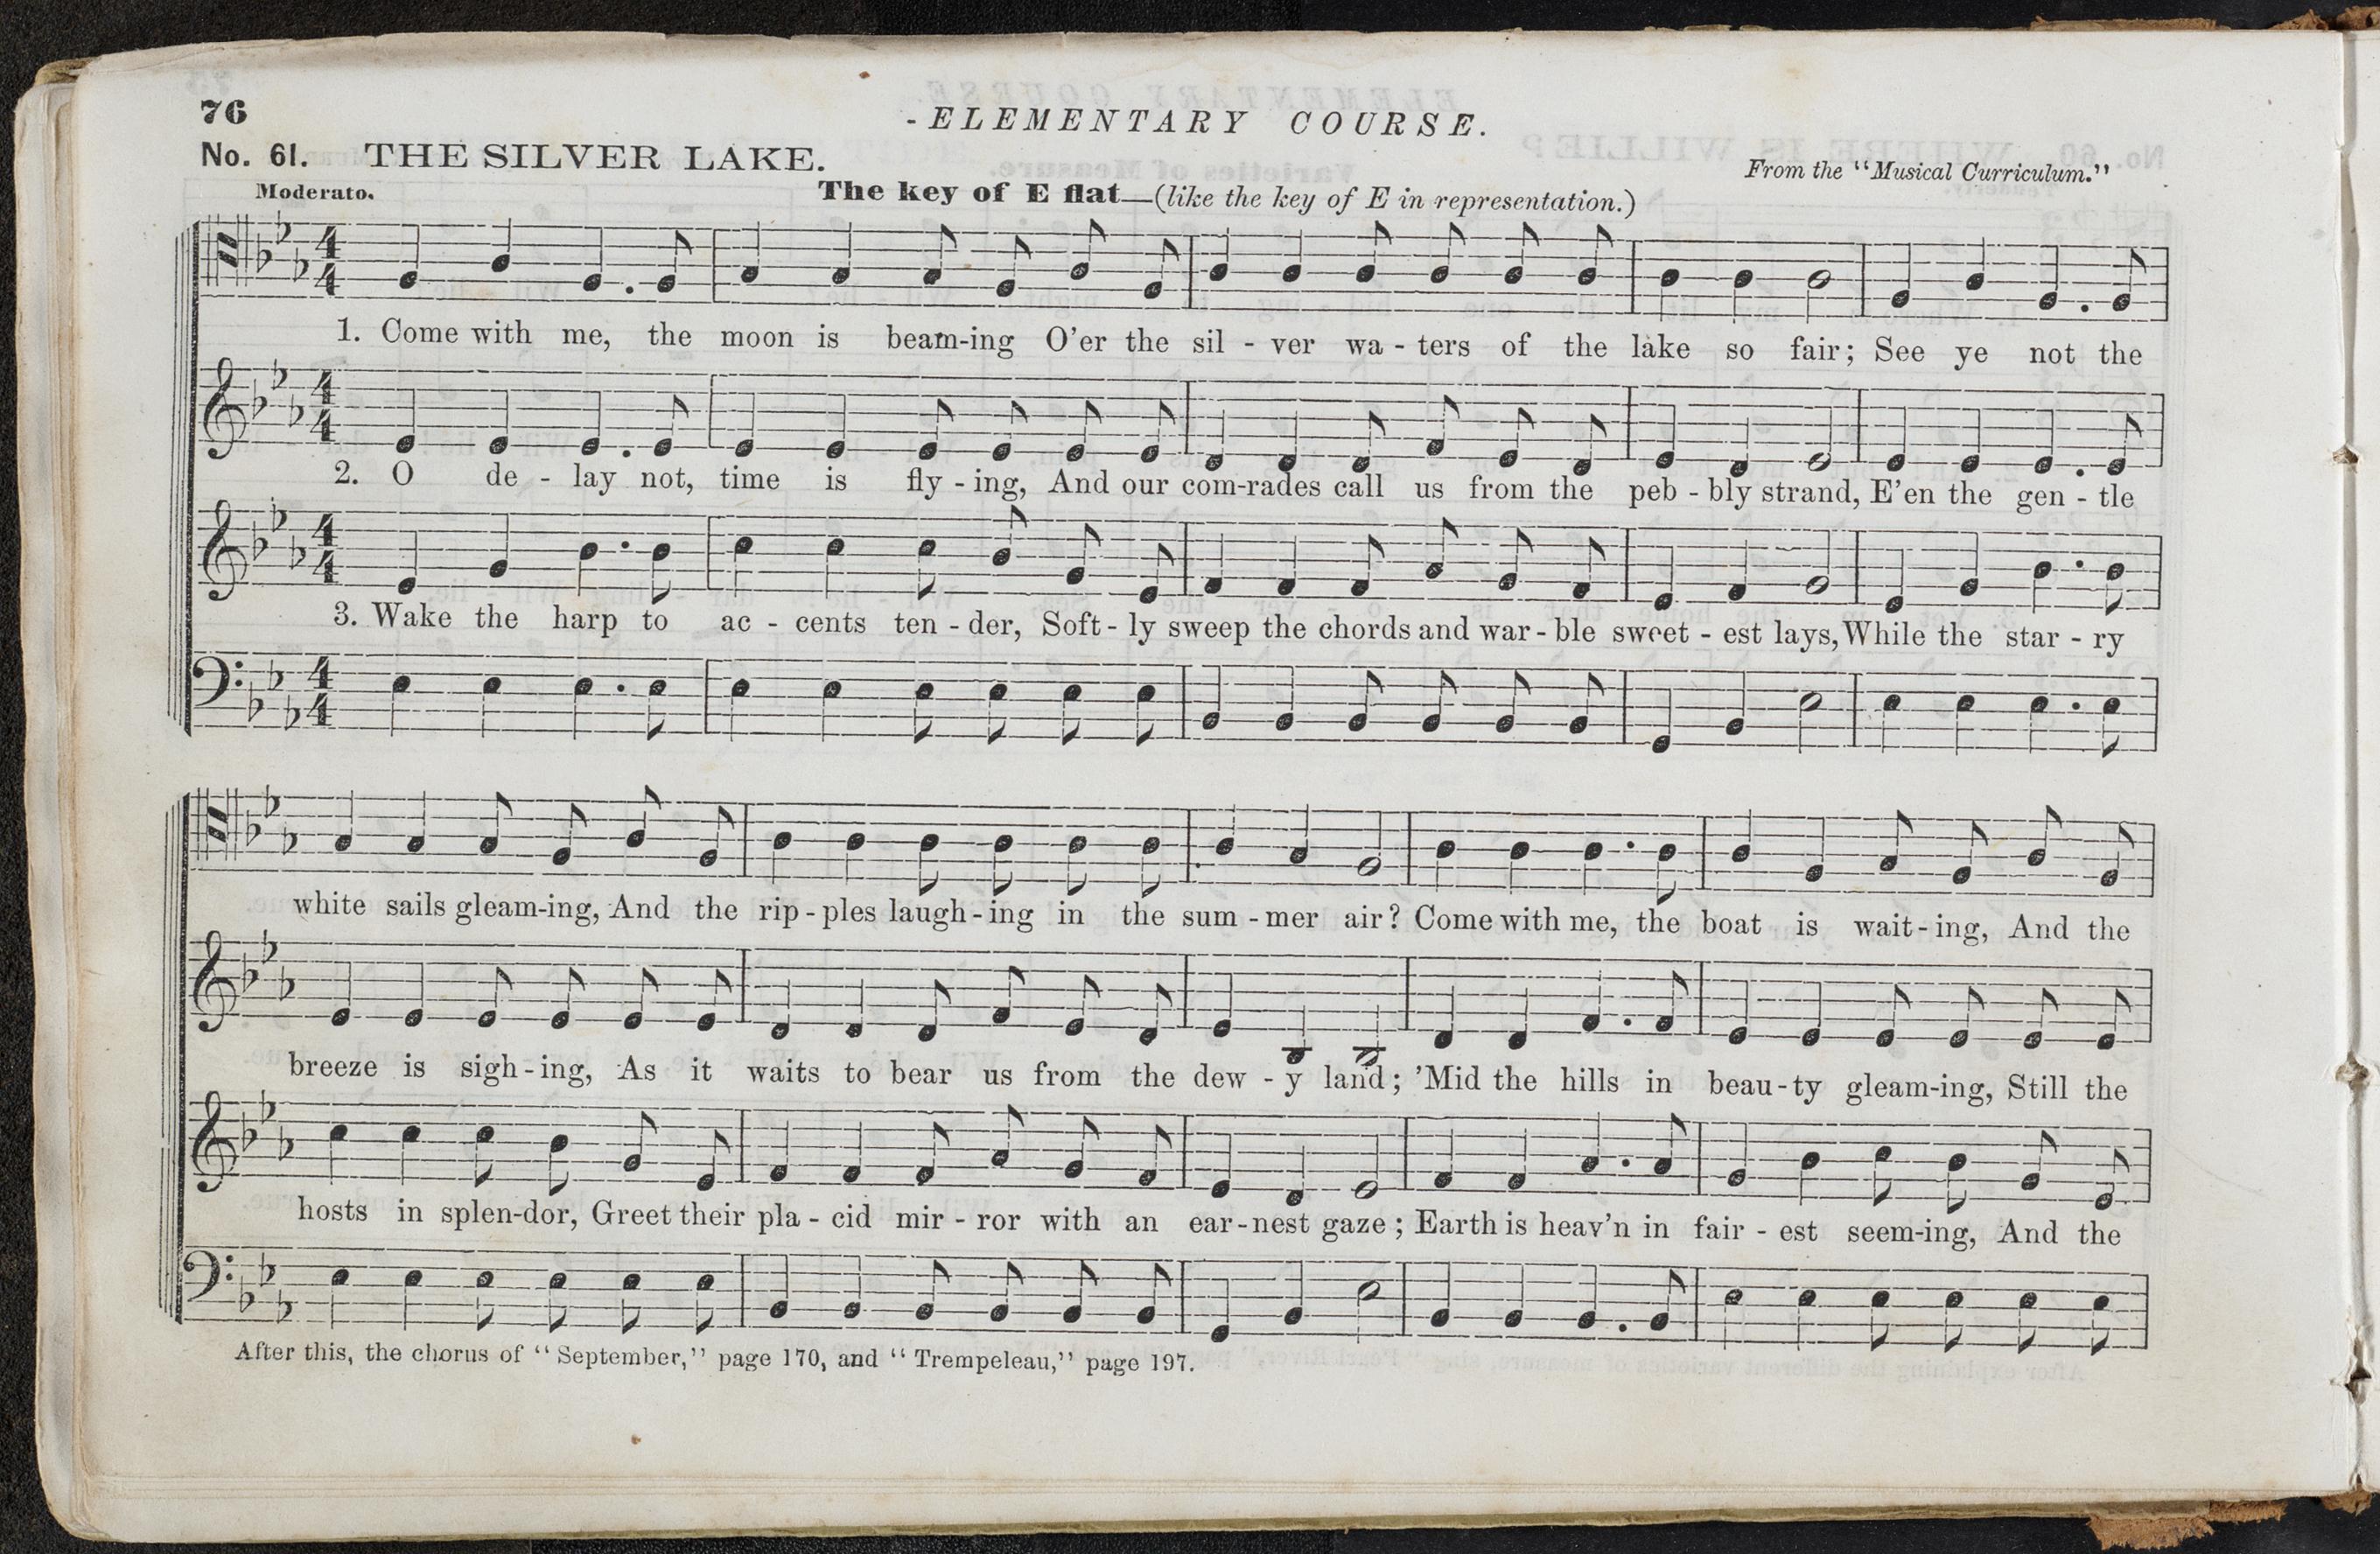 76
-ELEMENTARY COURSE.
No. 61. THE SILVER LAKE.
From the "Musical Curriculum."
Moderato.
The key of E flat—(like the key of E in representation.)
4 4
1. Come with me, the moon is beam-ing O'er the sil - ver wa - ters of the lake so fair; See ye not the
4 4
2. O de - lay not, time is fly - ing, And our com-rades call us from the peb - bly strand, E'en the gen - tle
4 4
3. Wake the harp to ac - cents ten - der, Soft - ly sweep the chords and war - ble sweet - est lays, While the star - ry
4 4
white sails gleam-ing, And the rip - ples laugh - ing in the sum - mer air? Come with me, the boat is wait - ing, And the
breeze is sigh - ing, As it waits to bear us from the dew - y land; 'Mid the hills in beau - ty gleam-ing, Still the
hosts in splen-dor, Greet their pla - cid mir - ror with an ear - nest gaze; Earth is heav'n in fair - est seem-ing, And the
After this, the chorus of "September," page 170, and "Trempeleau," page 197.